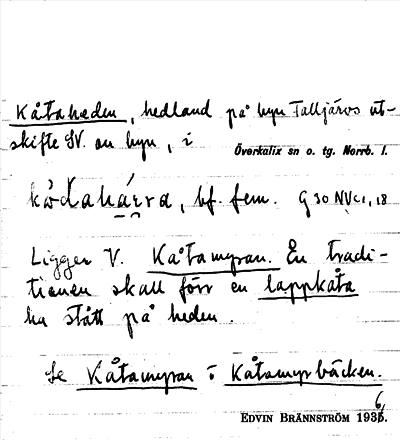 Kåtaheden, hedland på byn Talljärvs ut-
skifte SV. om byn, i
Överkalix sn o. tg. Norrb. l.
bf. fem. G 30 NV c1, 18
Ligger V. Kåtamyran. En tradi-
tionen skall förr en lappkåta
ha stått på heden.
Se Kåtamyran o Kåtamyrbäcken.
EDVIN BRÄNNSTRÖM 1936.